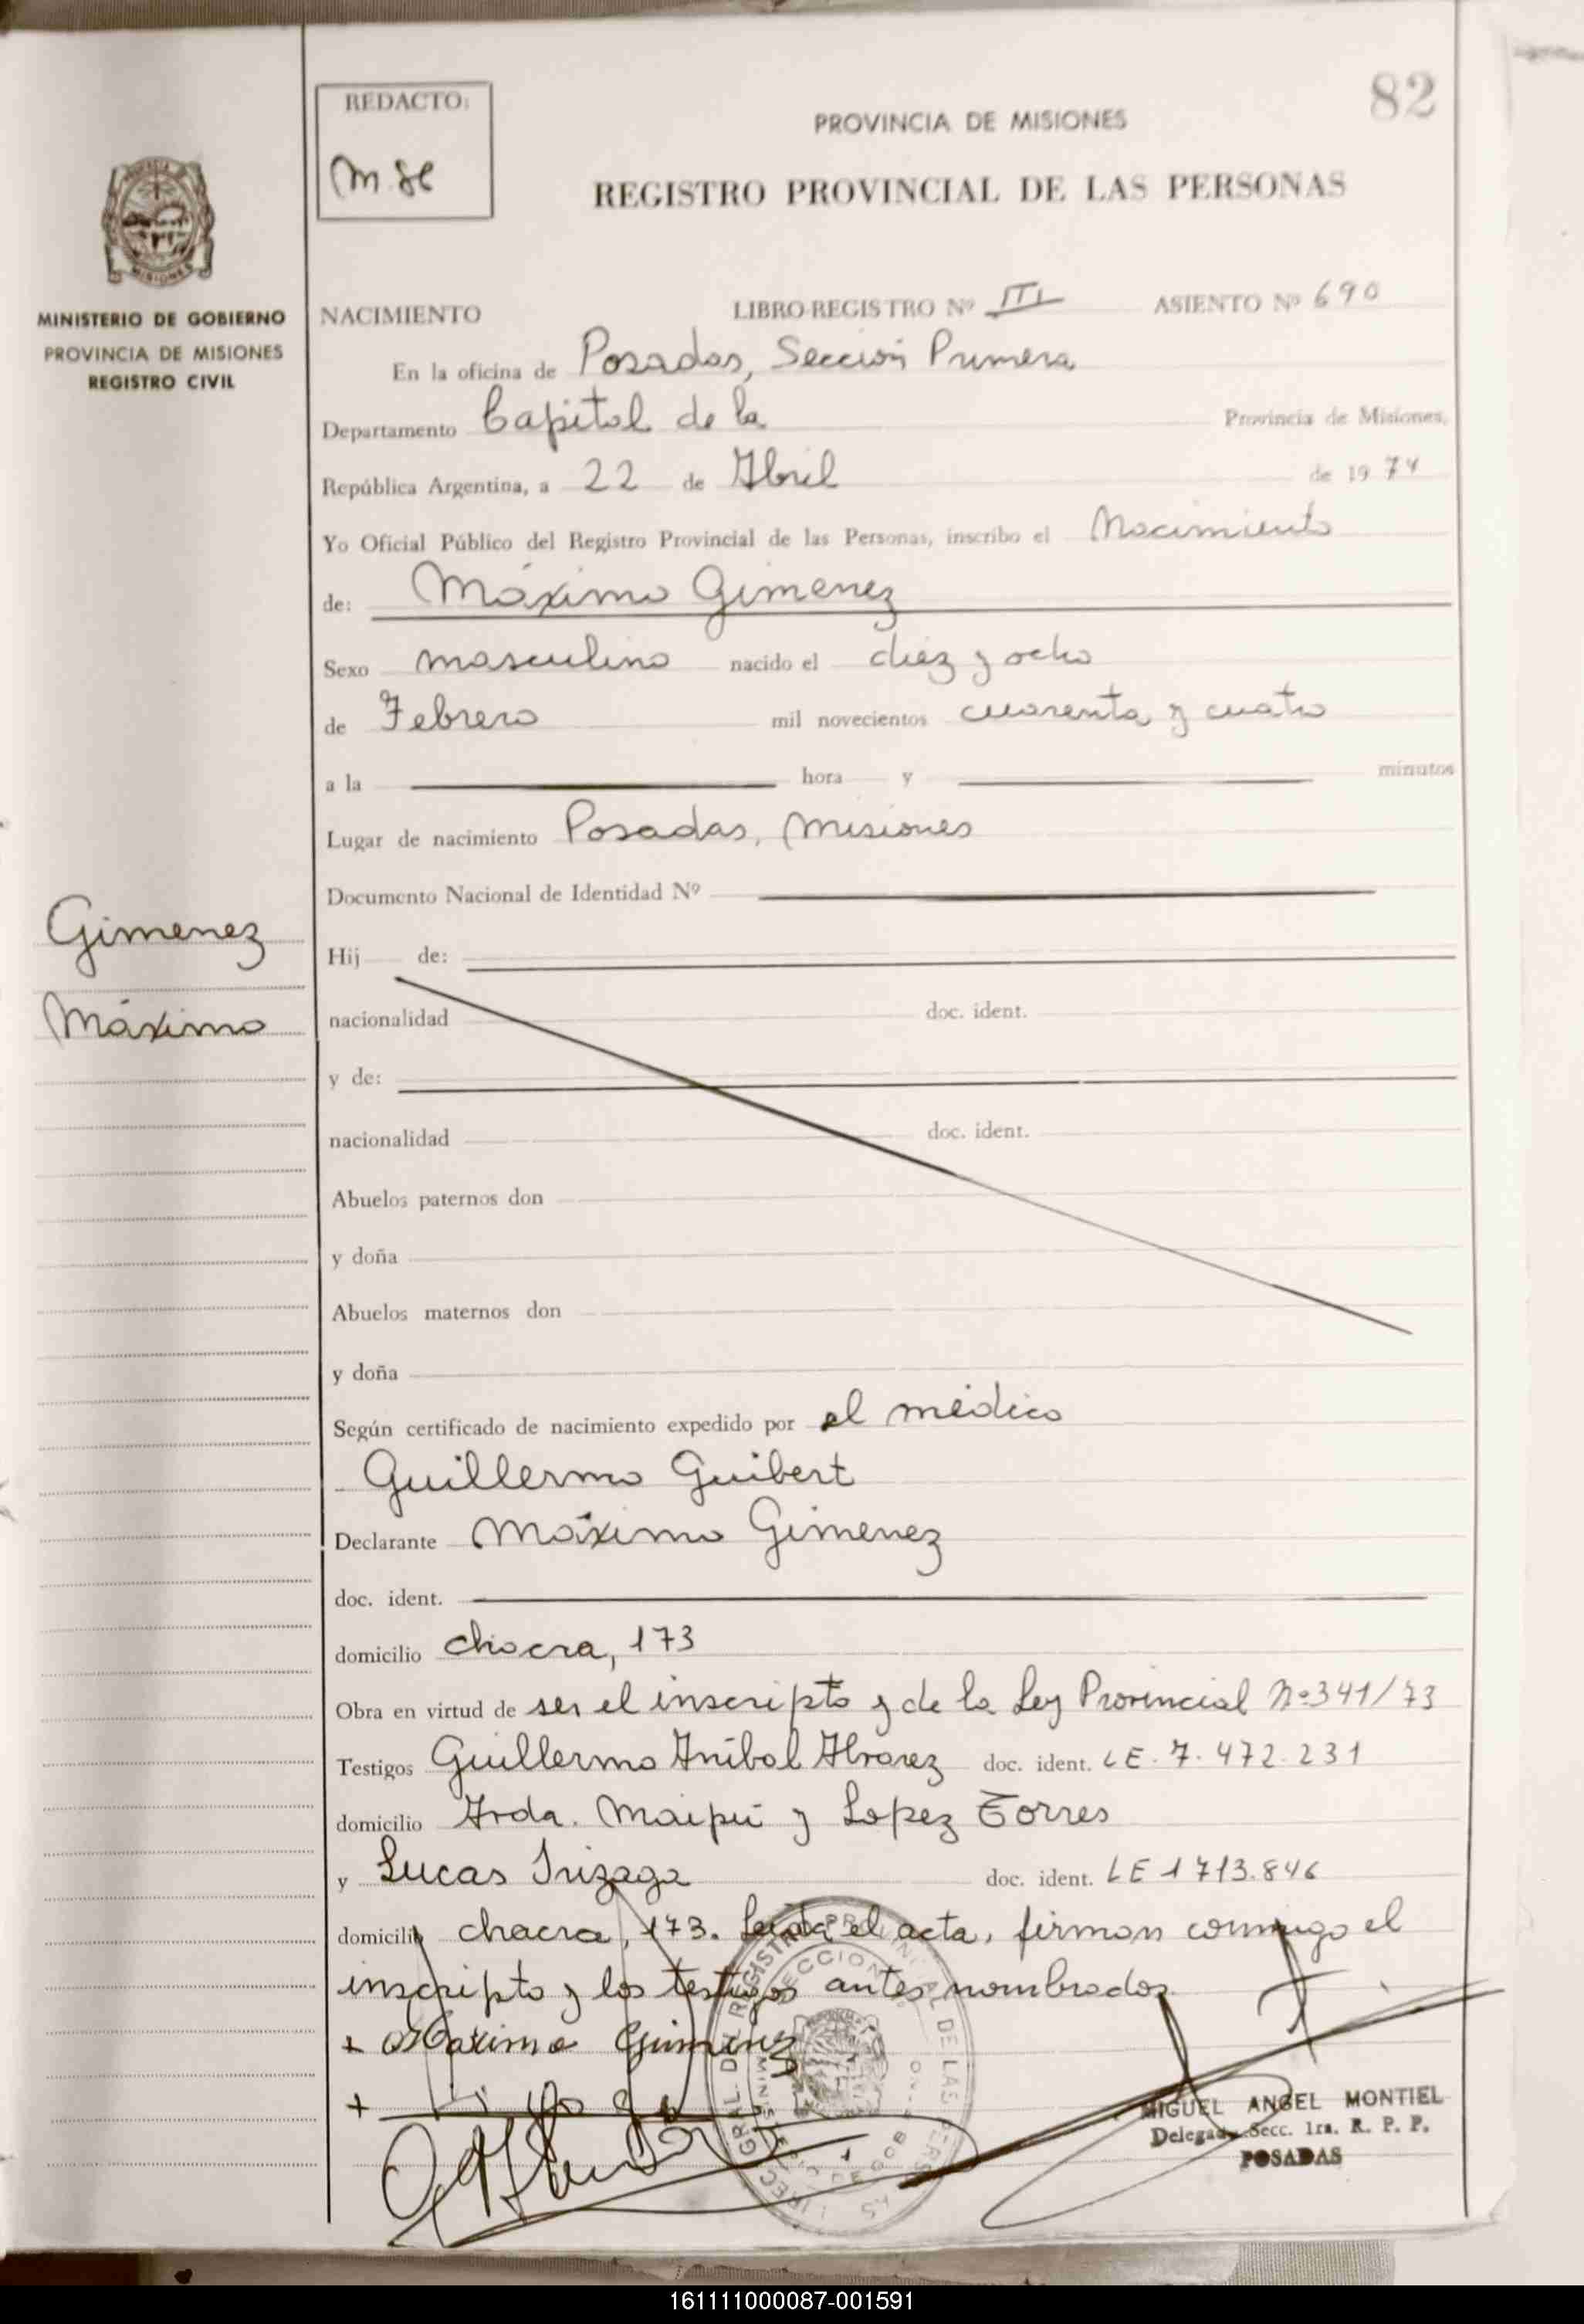 82
REDACTO:
M. Se
PROVINCIA DE MISIONES
REGISTRO PROVINCIAL DE LAS PERSONAS
MISIONES
MINISTERIO DE GOBIERNO
PROVINCIA DE MISIONES
REGISTRO CIVIL
NACIMIENTO LIBRO-REGISTRO Nº III ASIENTO Nº 690
En la oficina de Posadas, Sección Primera
Departamento Capital de la Provincia de Misiones,
República Argentina, a 22 de Abril de 1974
Yo Oficial Público del Registro Provincial de las Personas, inscribo el Nacimiento
de: Máximo Gimenez
Sexo masculino nacido el diez y ocho
de Febrero mil novecientos cuarenta y cuatro
a la hora y minutos
Lugar de nacimiento Posadas, Misiones
Documento Nacional de Identidad Nº
Gimenez
Máximo
Hij de:
nacionalidad doc. ident.
y de:
nacionalidad doc. ident.
Abuelos paternos don
y doña
Abuelos maternos don
y doña
Según certificado de nacimiento expedido por el médico
Guillermo Guibert
Declarante Máximo Gimenez
doc. ident.
domicilio chacra, 173
Obra en virtud de ser el inscripto y de la Ley Provincial Nº 341/73
Testigos Guillermo Aníbal Alvarez doc. ident. LE. 7.472.231
domicilio Avda. Maipú y Lopez Torres
y Lucas Irizaga doc. ident. LE 1713.846
domicilio chacra, 173. Leída el acta, firman conmigo el
inscripto y los testigos antes nombrados.
+ Maximo Gimenez
+
MIGUEL ANGEL MONTIEL
Delegado Secc. 1ra. R. P. P.
POSADAS
161111000087-001591